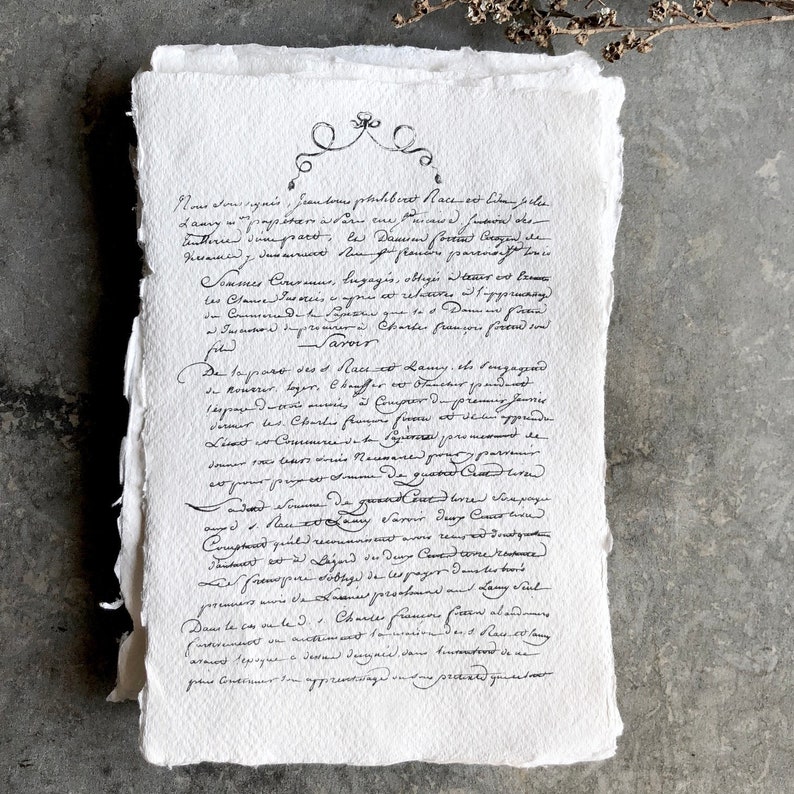 Nous Soussignés, Jean louis philibert Race et
Lamy m ds papetiers à Paris rue des
d'une part, le Damien fortin Citoyen de
Versailles y demeurant Rue St françois parroisse St louis
Sommes Convenus, Engagés, obligés à tenir et Executer
les Clauses Inserées cy après et relatives à l'apprentissage
du Commerce de la Papeterie que le s Damien fortin
a Intention de procurer à Charles françois fortin son
fils Savoir
De la part des s. Race et Lamy, ils s'engagent
de nourrir, loger, Chauffer et blanchir pendant
l'espace de trois années à Compter du premier Janvier
dernier le s. Charles françois fortin et de lui apprendre
L'état et Commerce de la Papeterie promettant de
donner tous leurs soins Necessaires pour y parvenir
et pour prix et Somme de quatre Cent livres
Ladite Somme de quatre Cent livres Sera payée
aux d. s. Race et Lamy Savoir deux Cent livres
Comptant qu'ils reconnoissent avoir reçus et dont quittance
d'autant et à L'égard des deux Cent livres restante
Le s fortin pere s'oblige de les payer dans les trois
premiers mois de L'année prochaine au s Lamy Seul
Dans le cas ou le d. s Charles françois fortin abandonneroit
furtivement ou autrement la maison des s. Race et Lamy
avant l'epoque cy dessus designée dans l'intention de ne
plus Continuer Son apprentissage ou sous pretexte que ce soit